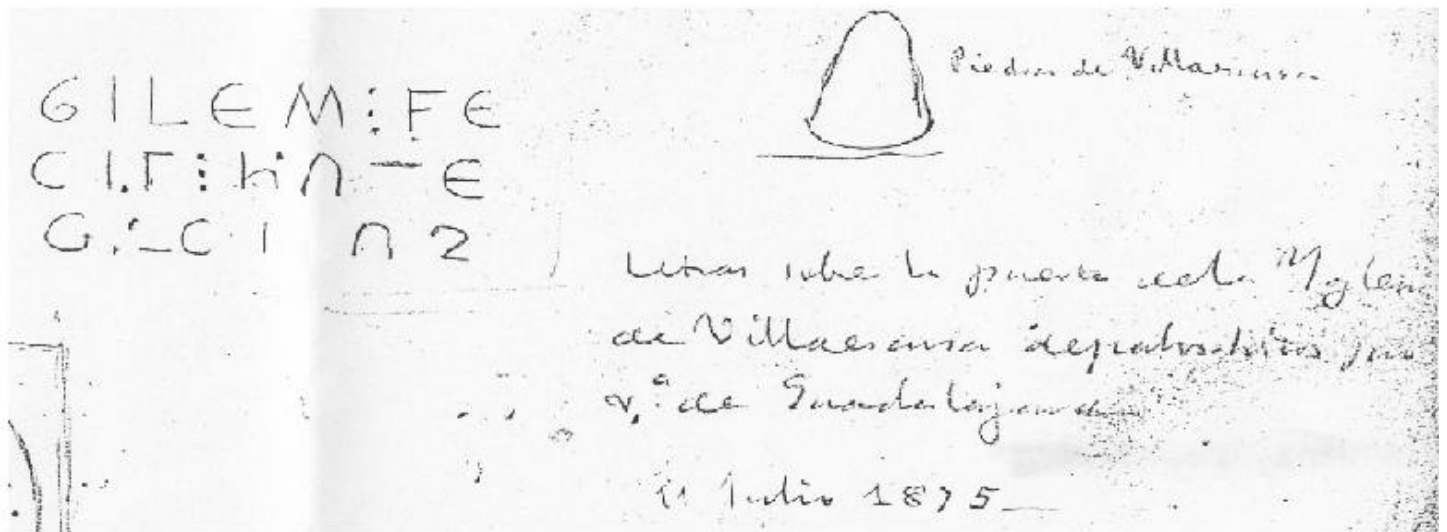 GILEM:FE
Piedra de Villaescusa
Letras sobre la puerta de la Yglesia
de Villaescusa de palositos pro
v.ª de Guadalajara
11 Julio 1875